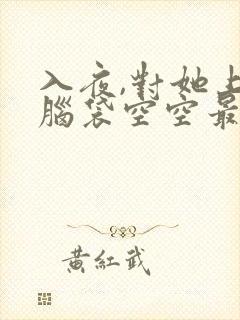 入夜,對她上
腦袋空空最
黃紅武